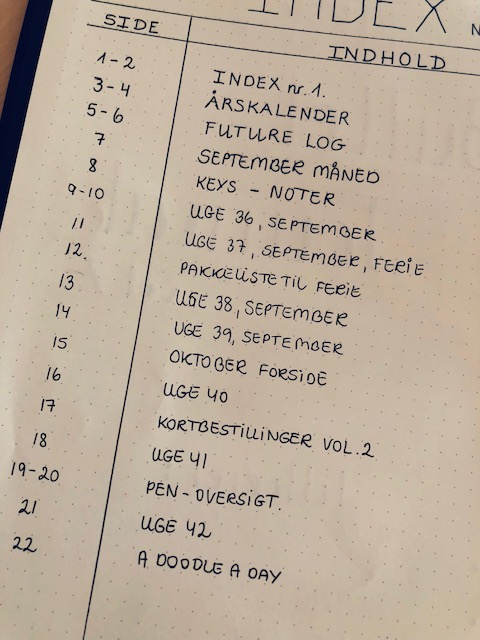 INDEX
SIDE INDHOLD
1-2 INDEX nr.1.
3-4 ÅRSKALENDER
5-6 FUTURE LOG
7 SEPTEMBER MÅNED
8 KEYS - NOTER
9-10 UGE 36, SEPTEMBER
11 UGE 37, SEPTEMBER, FERIE
12. PAKKELISTE TIL FERIE
13 UGE 38, SEPTEMBER
14 UGE 39, SEPTEMBER
15 OKTOBER FORSIDE
16 UGE 40
17 KORTBESTILLINGER VOL.2
18 UGE 41
19-20 PEN-OVERSIGT.
21 UGE 42
22 A DOODLE A DAY